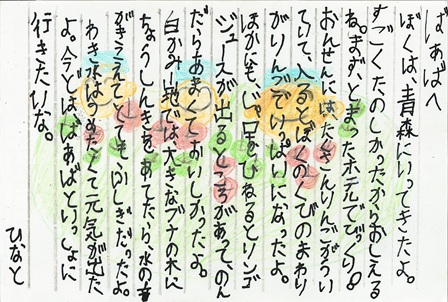 ばぁばへ
ぼくは、青森にいってきたよ。
すごくたのしかったからおしえる
ね。まず、とまったホテルでびっくり！
おんせんには、たくさんりんごがうい
ていて、入るとぼくのくびのまわり
がりんごでいっぱいになったよ。
ほかにも、じゃ口をひねるとリンゴ
ジュースが出るところがあって、のん
だらあまくておいしかったよ。
白かみ山地では大きなブナの木に
ちょうしんきをあてたら、水の音
がきこえてとてもふしぎだったよ。
わき水はつめたくて元気が出た
よ。今どはばぁばといっしょに
行きたいな。
ひなと